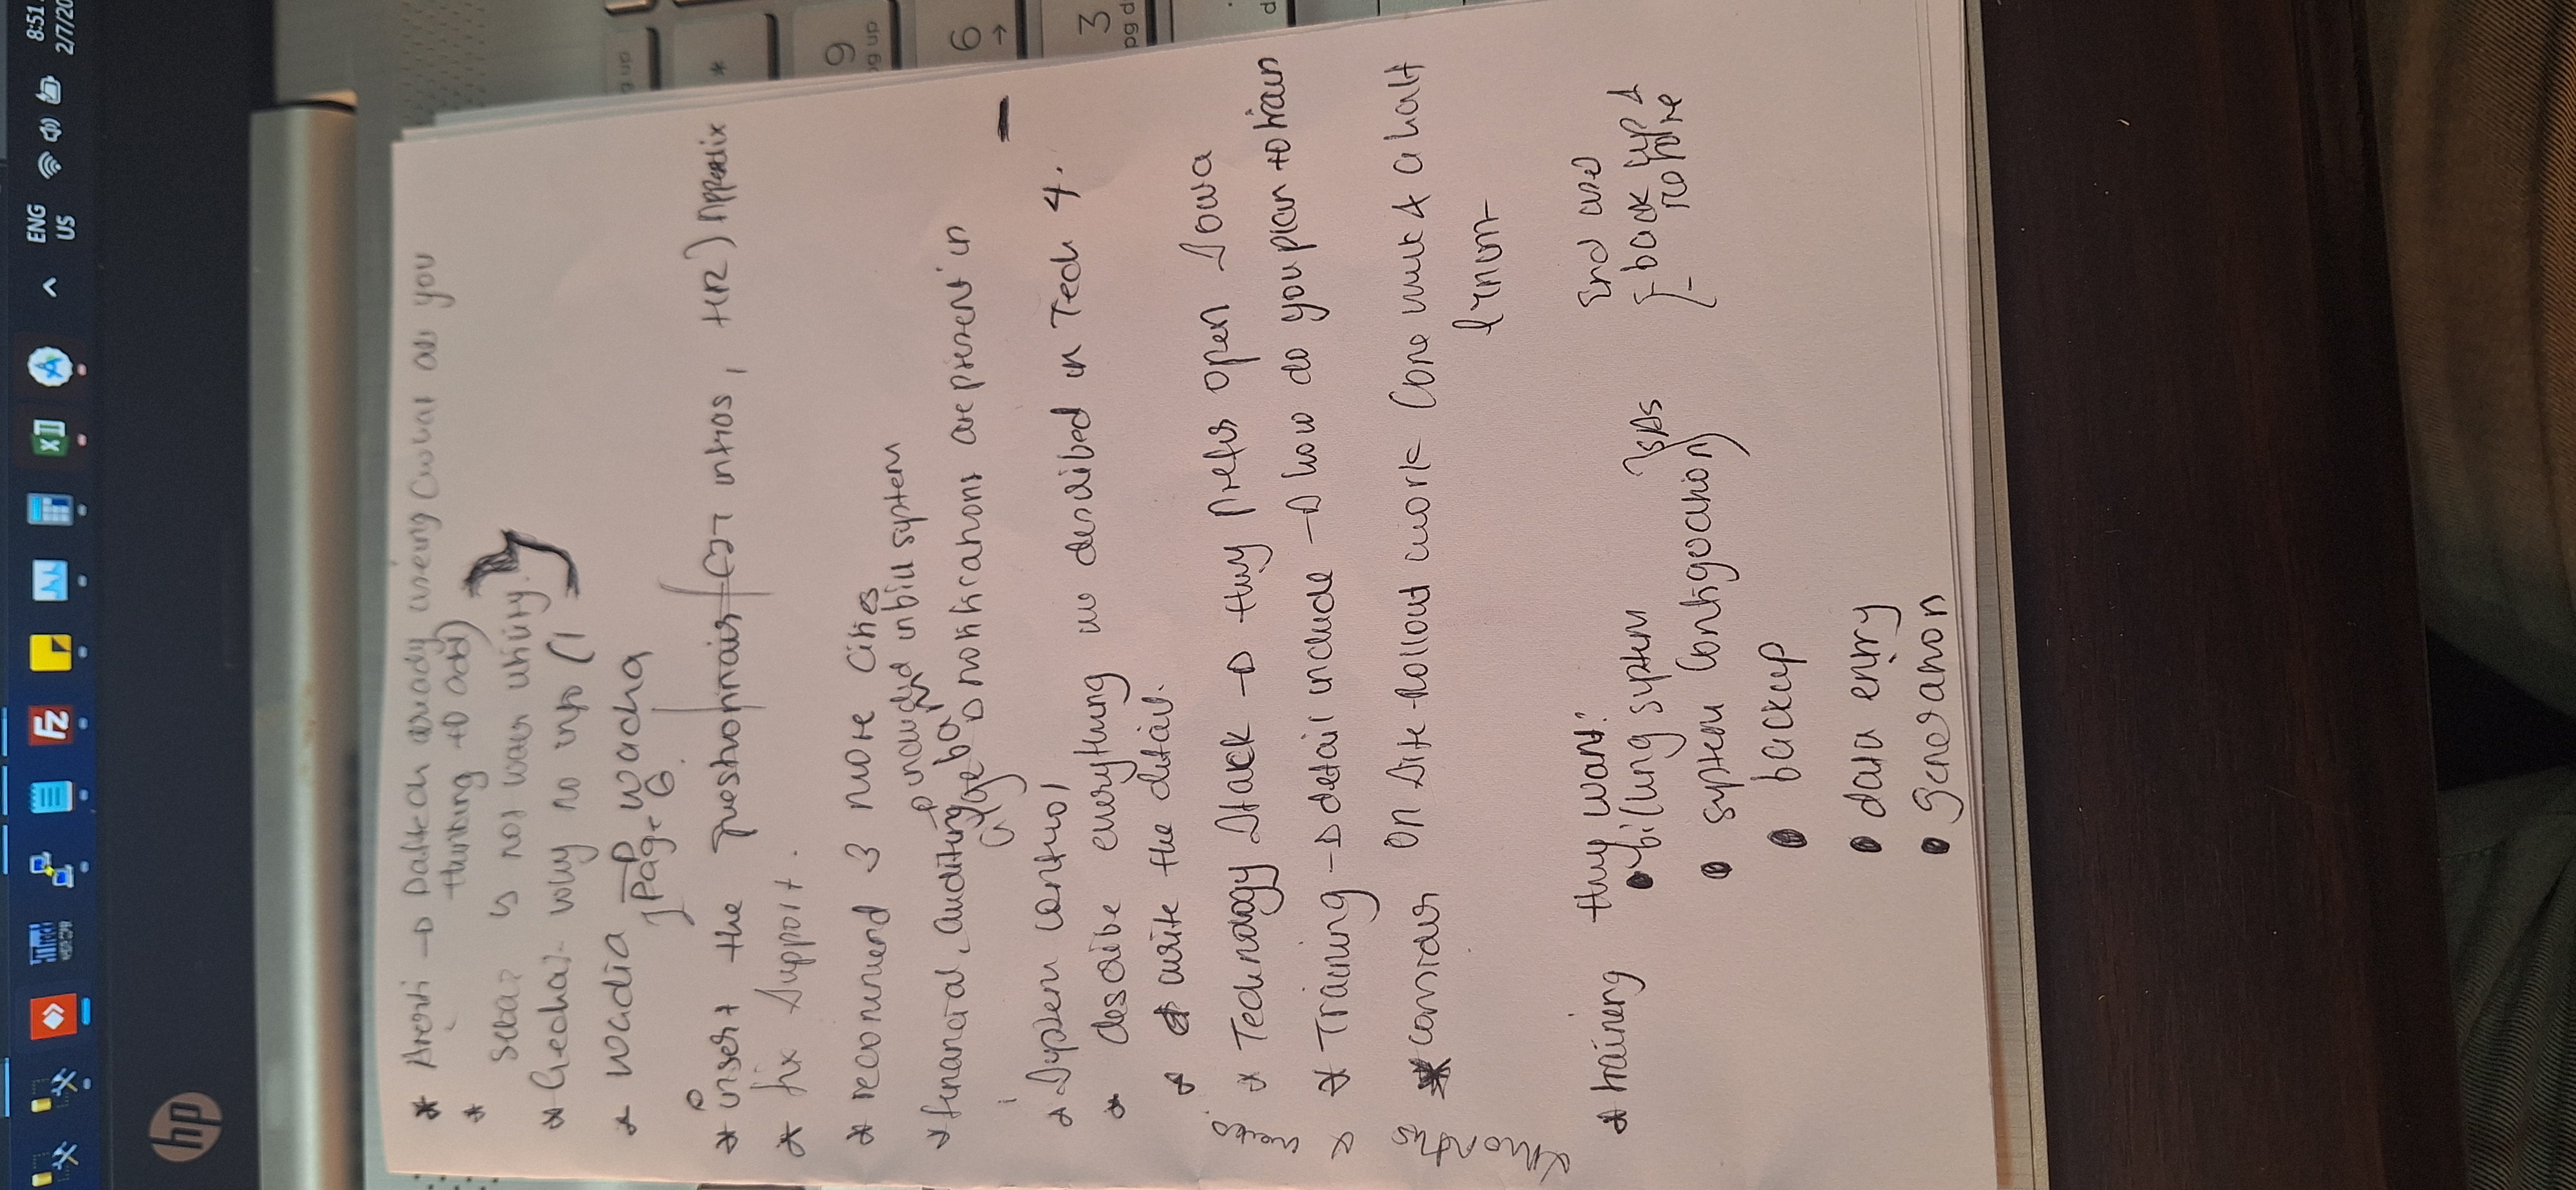 ENG
US
8:51
2/7/20
hp
* → Daftech already using (what are you
thinking to add)
*
is not water utility.
* Gecha? why no info (1
* Wadia → wacha
Page 6
* insert the questionnair (IT infras, HR) Appendix
* fix Support.
* recommend 3 more Cities
→ included in bill system
* financial, auditing
→ notifications are present in
* System control
* describe everything we described in Tech 4.
* write the detail.
* Technology Stack → they prefer open Sowa
* Training → detail include → how do you plan to train
* consider On Site Rollout work (one week & a half
* months & weeks.
* training they want:
• billing system
• system Configuration
• backup
• data entry
• generation
End user
- back up &
restore
-
g up
*
9
pg up
6
→
3
pg d